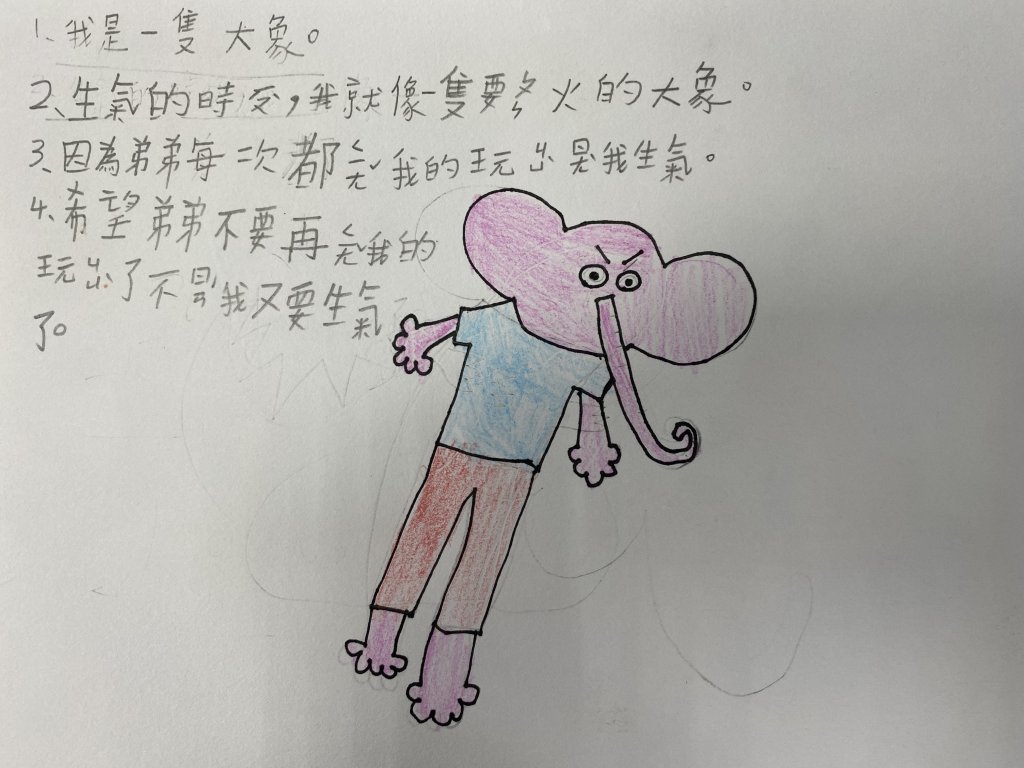 1、我是一隻大象。
2、生氣的時候,我就像一隻要噴火的大象。
3、因為弟弟每一次都 我的玩 是我生氣。
4、希望弟弟不要再 我的
玩 了不是我又要生氣
了。